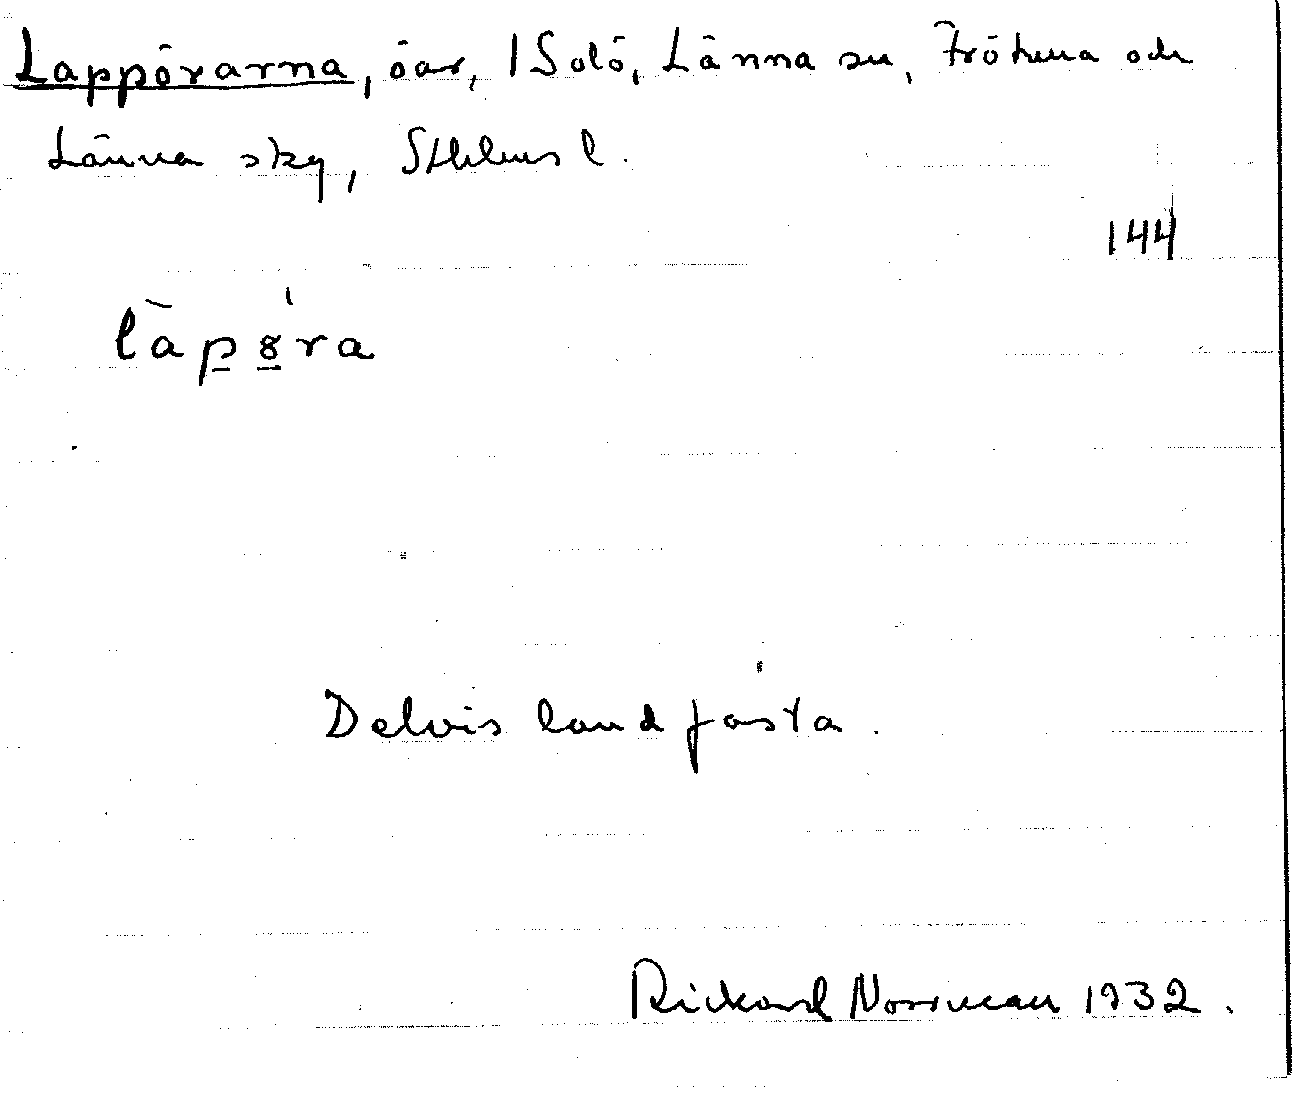 Lappörarna, öar, 1 Solö, Länna sn, Frötuna och
Länna skg, Sthlms l.
144
làpöra
Delvis landfasta.
Rickard Norrman 1932.